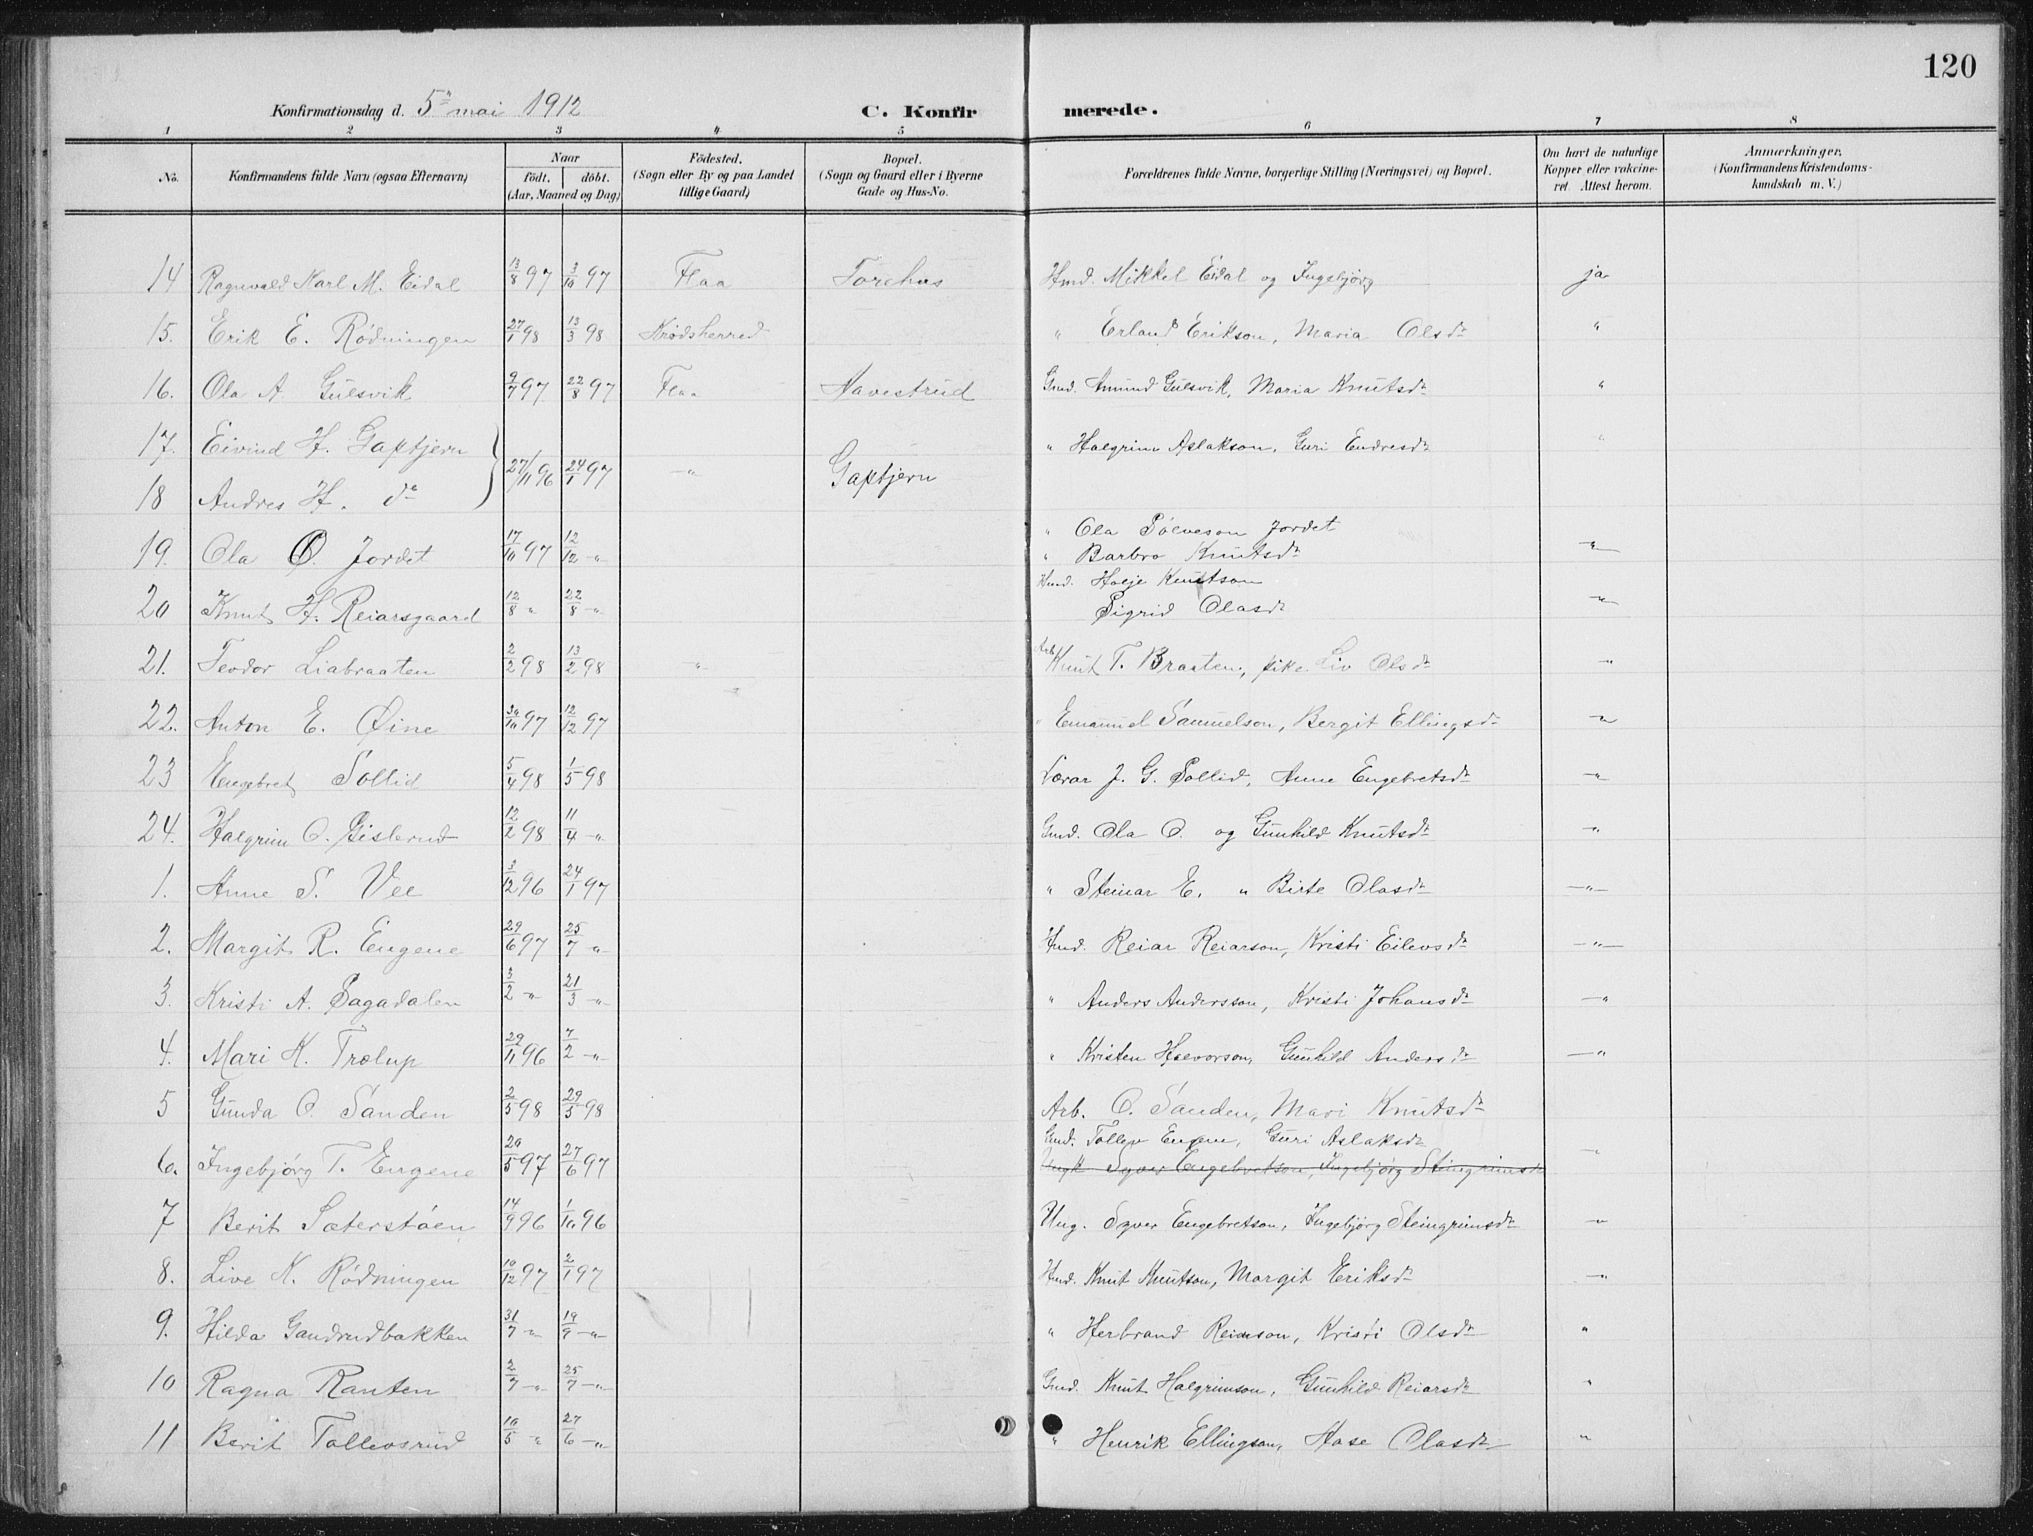 120
Konfirmationsdag d. 5" mai 1912 C. Konfirmerede.
1 2 3 4 5 6 7 8
No. Konfirmandens fulde Navn (ogsaa Efternavn) Naar født. døbt. (Aar, Maaned og Dag) Fødested. (Sogn eller By og paa Landet tillige Gaard) Bopæl. (Sogn og Gaard eller i Byerne Gade og Hus-No. Forældrenes fulde Navne, borgerlige Stilling (Næringsvei) og Bopæl. Om havt de naturlige Kopper eller vakcineret. Attest herom. Anmærkninger, (Konfirmandens Kristendomskundskab m. V.)
14 Ragnvald Karl M. Eidal 13/8 97 3/10 97 Flaa Torehus Hmd. Mikkel Eidal og Ingebjørg ja
15. Erik E. Rødningen 27/1 98 13/3 98 Krødsherred " Erland Erikson, Maria Olsdr "
16. Ola A Gulsvik 9/7 97 22/8 97 Flaa Havestrud Gmd. Amund Gulsvik, Maria Knutsdr "
17. Eivind H. Gaptjern " Halgrim Aslakson, Guri Endresdr "
18 Andres H. do 27/11 96 24/1 97 –"– Gaptjern
19. Ola O. Jordet 17/10 97 12/12 –"– " Ola Sølveson Jordet
" Barbro Knutsdr –"–
20 Knut H. Reiarsgaard 12/8 " 22/8 –"– Hmd. Holje Knutson
Sigrid Olasdr –"–
21. Teodor Liabraaten 2/2 98 13/2 98 –"– Arb. Knut T. Braaten, pike Liv Olsdr –"–
22. Anton E. Øine 30/10 97 12/12 97 " Emanuel Samuelson, Bergit Ellingsdr –"–
23 Engebret Sollid 5/4 98 1/5 98 Lærar J. G. Sollid, Anne Engebretsdr –"–
24. Halgrim O. Gislerud 12/2 98 11/4 –"– Gmd. Ola O. og Gunhild Knutsdr –"–
1. Anne S. Vee 3/12 96 24/1 97 " Steinar E. " Birte Olasdr –"–
2. Margit R. Engene 29/6 97 25/7 –"– Hmd. Reiar Reiarson, Kristi Eilevsdr –"–
3. Kristi A. Sagadalen 3/2 –"– 21/3 –"– " Anders Andersson, Kristi Johansdr –"–
4. Mari K. Trolup 29/11 96 7/2 –"– " Kristen Halvorson, Gunhild Andersdr –"–
5 Gunda O. Sanden 2/5 98 29/5 98 Arb. O. Sanden, Mari Knutsdr
Gmd. Tollev Engene, Guri Aslaksdr
6. Ingebjørg T. Engene 20/5 97 27/6 97 Ungk Syver Engebretson, Ingebjørg Steingrimsdr –"–
7 Berit Sæterstøen 14/9 96 1/10 96 Ung. Syver Engebretson, Ingebjørg Steingrimsdr –"–
8. Live K. Rødningen 10/12 97 2/1 97 Hmd. Knut Knutson, Margit Eriksdr –"–
9. Hilda Gandrudbakken 31/7 –"– 19/9 –"– " Herbrand Reiarson, Kristi Olsdr "
10 Ragna Ranten 2/7 –"– 25/7 –"– Gmd. Knut Halgrimson, Gunhild Reiarsdr "
11 Berit Tollevsrud 10/5 " 27/6 –"– " Henrik Ellingson, Aase Olasdr –"–